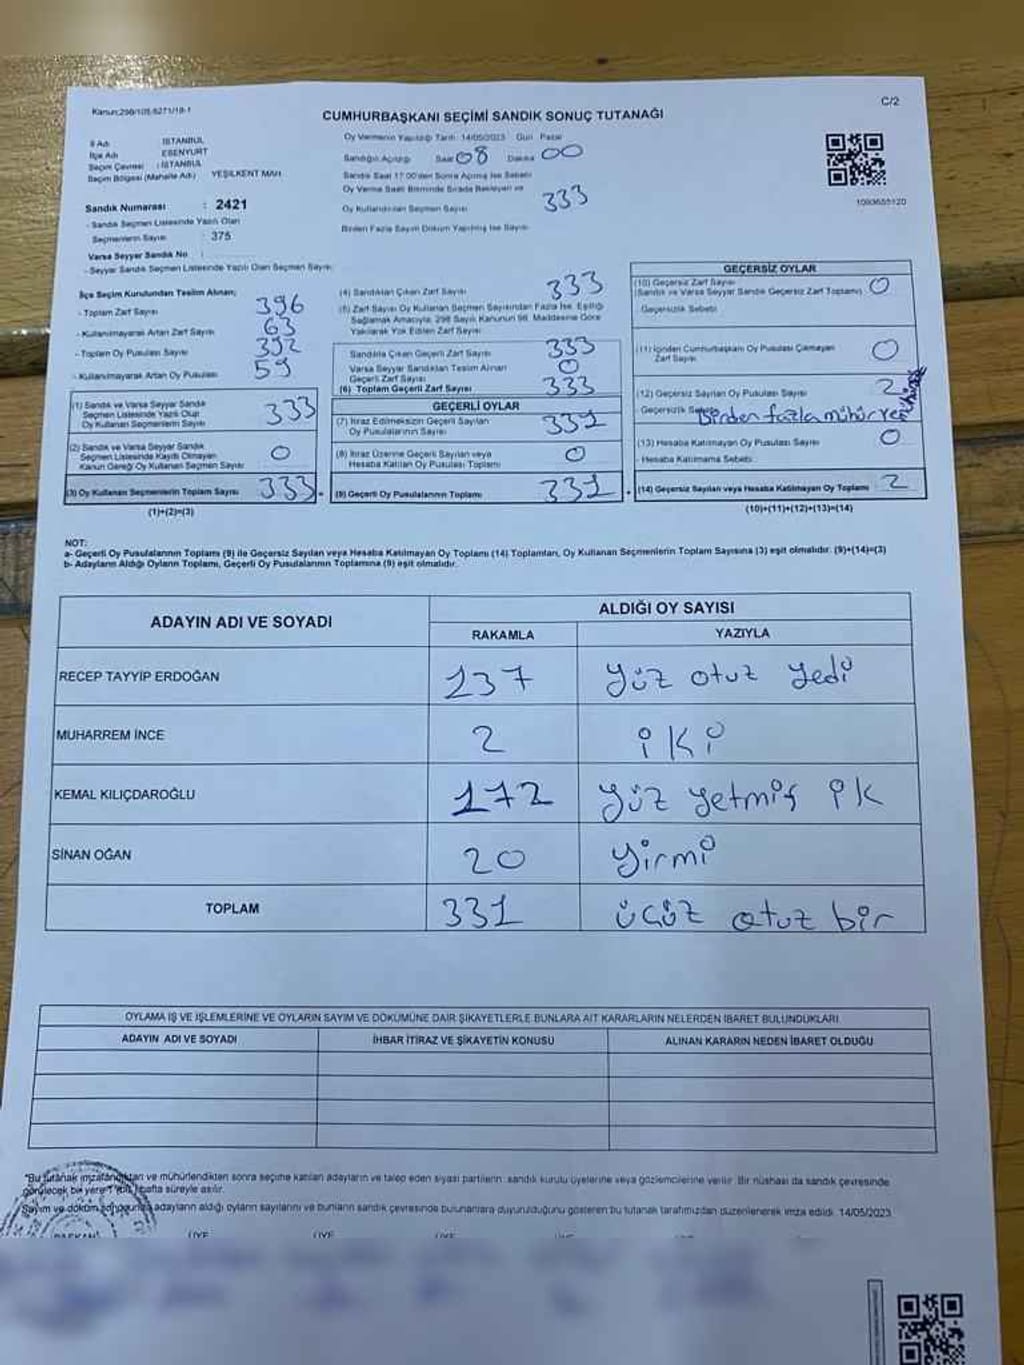 Kanun:298/105-6271/19-1
C/2
CUMHURBAŞKANI SEÇİMİ SANDIK SONUÇ TUTANAĞI
İli Adı İSTANBUL
İlçe Adı ESENYURT
Seçim Çevresi : İSTANBUL
Seçim Bölgesi (Mahalle Adı) YEŞİLKENT MAH.
Sandık Numarası : 2421
- Sandık Seçmen Listesinde Yazılı Olan
Seçmenlerin Sayısı : 375
Varsa Seyyar Sandık No :
- Seyyar Sandık Seçmen Listesinde Yazılı Olan Seçmen Sayısı:
Oy Vermenin Yapıldığı Tarih: 14/05/2023 Gün Pazar
Sandığın Açılışı Saat 08 Dakika 00
Sandık Saat 17:00'den Sonra Açılmış İse Sebebi
Oy Verme Saati Bitiminde Sırada Bekleyen ve
Oy Kullandırılan Seçmen Sayısı 333
Birden Fazla Sayım Döküm Yapılmış İse Sayısı
İlçe Seçim Kurulundan Teslim Alınan;
- Toplam Zarf Sayısı 396
- Kullanılmayarak Artan Zarf Sayısı 63
- Toplam Oy Pusulası Sayısı 392
- Kullanılmayarak Artan Oy Pusulası 59
(1) Sandık ve Varsa Seyyar Sandık
Seçmen Listesinde Yazılı Olup
Oy Kullanan Seçmenlerin Sayısı 333
(2) Sandık ve Varsa Seyyar Sandık
Seçmen Listesinde Kayıtlı Olmayan
Kanun Gereği Oy Kullanan Seçmen Sayısı 0
(3) Oy Kullanan Seçmenlerin Toplam Sayısı 333
(1)+(2)=(3)
(4) Sandıktan Çıkan Zarf Sayısı 333
(5) Zarf Sayısı Oy Kullanan Seçmen Sayısından Fazla İse, Eşitliği
Sağlamak Amacıyla, 298 Sayılı Kanunun 98. Maddesine Göre
Yakılarak Yok Edilen Zarf Sayısı
Sandıkta Çıkan Geçerli Zarf Sayısı 333
Varsa Seyyar Sandıktan Teslim Alınan
Geçerli Zarf Sayısı 0
(6) Toplam Geçerli Zarf Sayısı 333
GEÇERLİ OYLAR
(7) İtiraz Edilmeksizin Geçerli Sayılan
Oy Pusulalarının Sayısı 331
(8) İtiraz Üzerine Geçerli Sayılan veya
Hesaba Katılan Oy Pusulası Toplamı 0
(9) Geçerli Oy Pusulalarının Toplamı 331
GEÇERSİZ OYLAR
(10) Geçersiz Zarf Sayısı
(Sandık ve Varsa Seyyar Sandık Geçersiz Zarf Toplamı) 0
Geçersizlik Sebebi
(11) İçinden Cumhurbaşkanı Oy Pusulası Çıkmayan
Zarf Sayısı 0
(12) Geçersiz Sayılan Oy Pusulası Sayısı 2
- Geçersizlik Sebebi Birden fazla mühür
(13) Hesaba Katılmayan Oy Pusulası Sayısı 0
- Hesaba Katılmama Sebebi
(14) Geçersiz Sayılan veya Hesaba Katılmayan Oy Toplamı 2
(10)+(11)+(12)+(13)=(14)
NOT:
a- Geçerli Oy Pusulalarının Toplamı (9) ile Geçersiz Sayılan veya Hesaba Katılmayan Oy Toplamı (14) Toplamları, Oy Kullanan Seçmenlerin Toplam Sayısına (3) eşit olmalıdır. (9)+(14)=(3)
b- Adayların Aldığı Oyların Toplamı, Geçerli Oy Pusulalarının Toplamına (9) eşit olmalıdır.
ADAYIN ADI VE SOYADI ALDIĞI OY SAYISI
RAKAMLA YAZIYLA
RECEP TAYYİP ERDOĞAN 137 yüz otuz yedi
MUHARREM İNCE 2 iki
KEMAL KILIÇDAROĞLU 172 yüz yetmiş ik
SİNAN OĞAN 20 yirmi
TOPLAM 331 üçüz otuz bir
OYLAMA İŞ VE İŞLEMLERİNE VE OYLARIN SAYIM VE DÖKÜMÜNE DAİR ŞİKAYETLERLE BUNLARA AİT KARARLARIN NELERDEN İBARET BULUNDUKLARI
ADAYIN ADI VE SOYADI İHBAR İTİRAZ VE ŞİKAYETİN KONUSU ALINAN KARARIN NEDEN İBARET OLDUĞU
*Bu tutanak imzalandıktan ve mühürlendikten sonra seçime katılan adayların ve talep eden siyasi partilerin sandık kurulu üyelerine veya gözlemcilerine verilir. Bir nüshası da sandık çevresinde
görülecek bir yere 1 (bir) hafta süreyle asılır.
Sayım ve döküm sonucunda adayların aldığı oyların sayılarını ve bunların sandık çevresinde bulunanlara duyurulduğunu gösteren bu tutanak tarafımızdan düzenlenerek imza edildi. 14/05/2023
BAŞKAN ÜYE ÜYE ÜYE ÜYE ÜYE